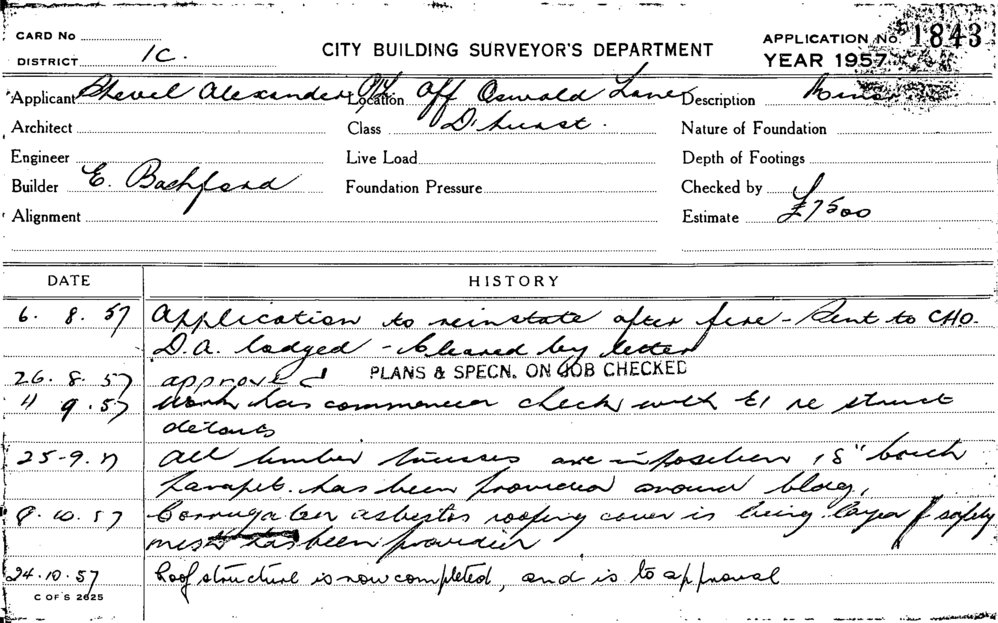 CARD No
DISTRICT 1C.
CITY BUILDING SURVEYOR'S DEPARTMENT
APPLICATION No 1843
YEAR 1957
Applicant Alexander P/L Location Off Oswald Lane Description
Architect Class D'hurst. Nature of Foundation
Engineer Live Load Depth of Footings
Builder E. Bachford Foundation Pressure Checked by
Alignment Estimate £7500
DATE HISTORY
6. 8. 57 Application to reinstate after fire - Sent to CHO.
D.A. lodged - Cleared by letter
26. 8. 57 approved PLANS & SPECN. ON JOB CHECKED
11 9. 57 Work has commenced check with E1 re struct
details
25-9. 57 All timber trusses are in position, 18" brick
parapet has been provided around bldg,
8. 10. 57 Corrugated asbestos roofing cover is being layed & safety
mesh has been provided
24. 10. 57 Roof structure is now completed, and is to approval
C OF S 2625